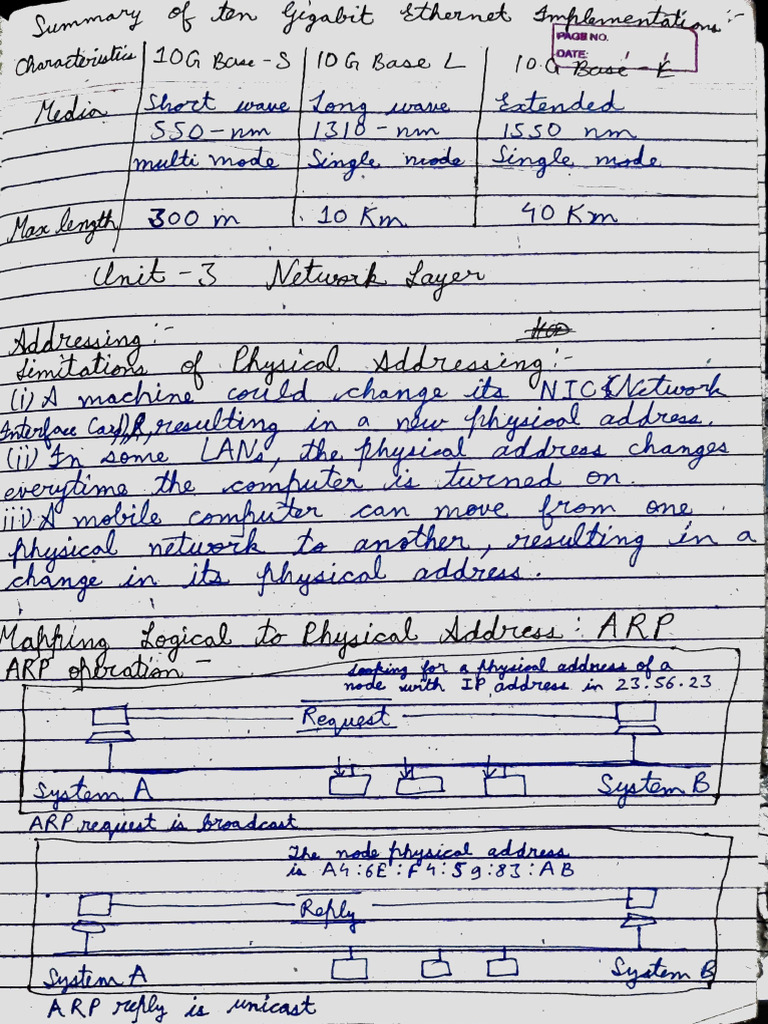 Summary of ten Gigabit Ethernet Implementations:-
PAGE NO.
DATE:
Characteristics 10G Base-S 10G Base L 10 G Base-E
Media Short wave Long wave Extended
550-nm 1310-nm 1550 nm
multi mode Single mode Single mode
Max length 300 m 10 Km 40 Km
Unit-3 Network Layer
Addressing:-
Limitations of Physical Addressing:-
(i) A machine could change its NIC (Network
Interface Card), resulting in a new physical address.
(ii) In some LANs, the physical address changes
everytime the computer is turned on.
iii) A mobile computer can move from one
physical network to another, resulting in a
change in its physical address.
Mapping Logical to Physical Address: ARP
ARP operation-
Looking for a physical address of a
node with IP address in 23.56.23
Request
System A System B
ARP request is broadcast
The node physical address
is A4:6E:F4:59:83:AB
Reply
System A System B
ARP reply is unicast